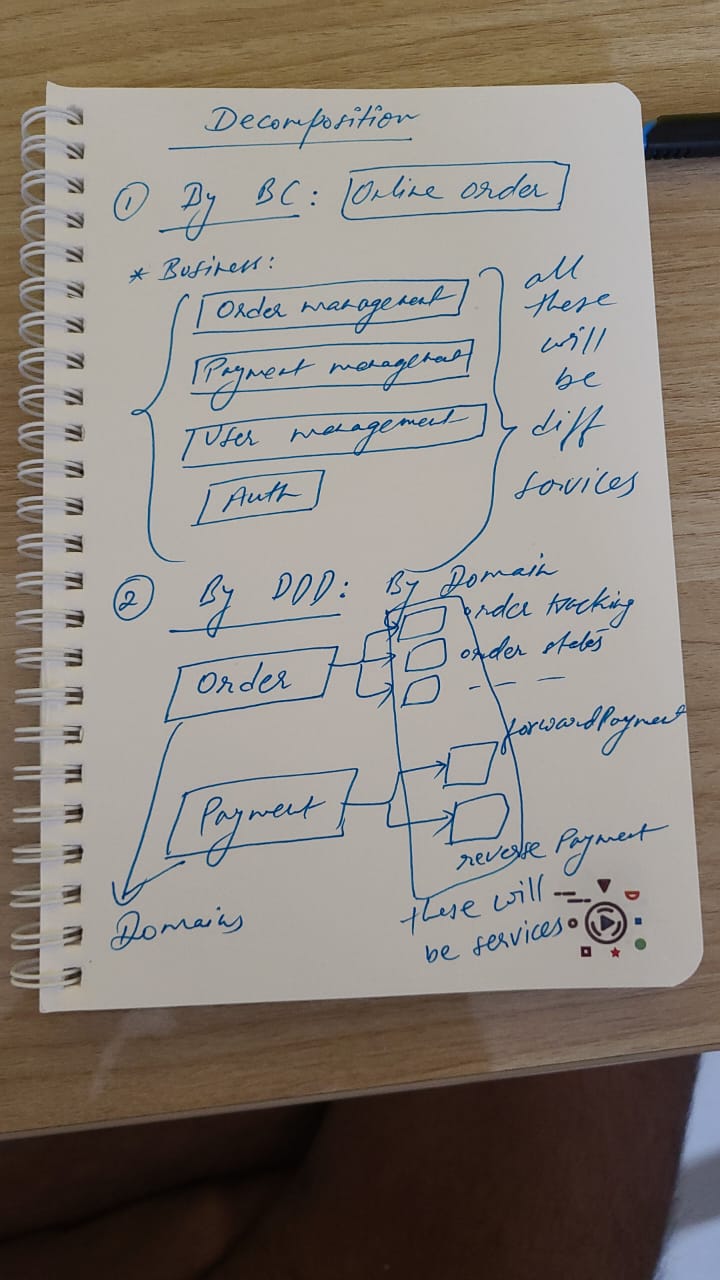 Decomposition
① By BC: Online order
* Business:
Order management
Payment management
User management
Auth
all
these
will
be
diff
services
② By DDD: By Domain
Order
order tracking
order states
Payment
forward Payment
reverse Payment
Domains
these will
be services